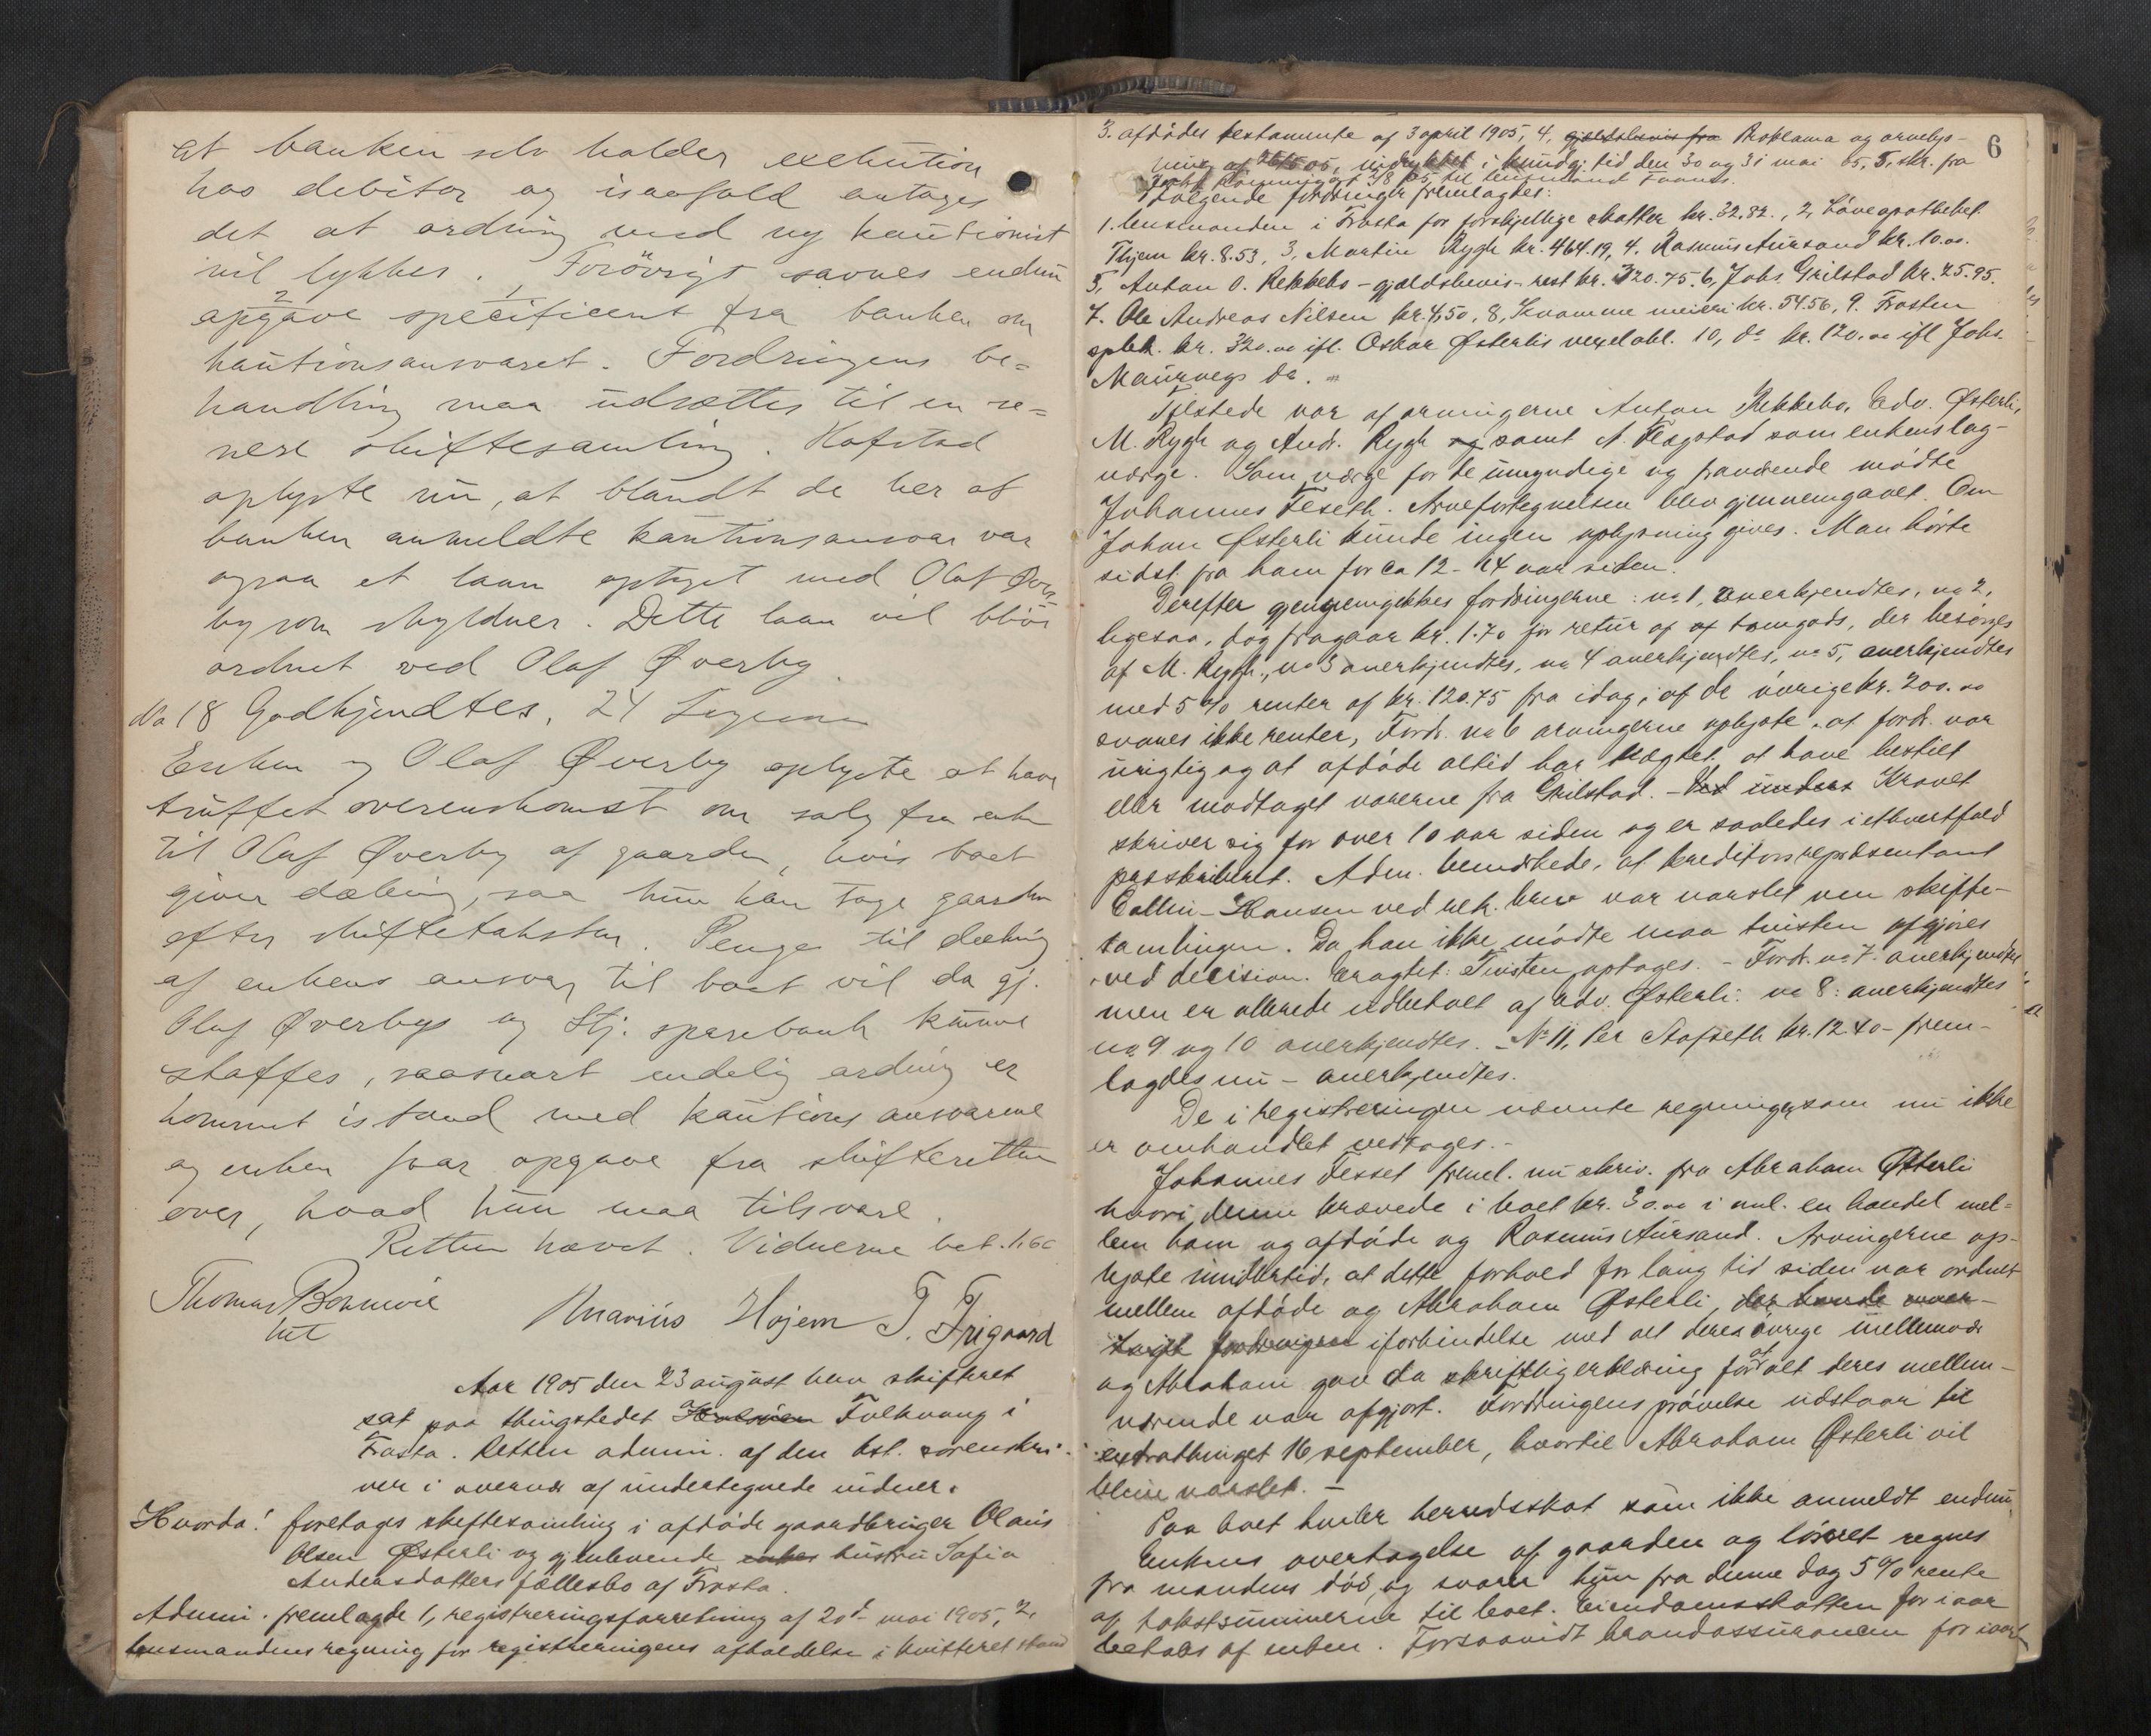 at banken selv holder exekution
hos debitor og isaafald antages
det at ordning med ny kautionist
vil lykkes. Forøvrigt savnes endnu
opgave specificeret fra banken om
kautionsansvaret. Fordringens be=
handling maa udsættes til en se=
nere skiftesamling. Hofstad
oplyste nu, at blandt de her af
banken anmeldte kautionsansvar var
ogsaa et laan optaget med Olaf Øver
by som skyldner. Dette laan vil bliv
ordnet ved Olaf Øverby.
No 18 Godkjendtes. 24
Enken og Olaf Øverby oplyste at have
truffet overenskomst om salg fra enken
til Olaf Øverby af gaarden, hvis boet
giver dækning, saa hun kan tage gaarden
efter skiftetaksten. Penge til dækning
af enkens ansvar til boet vil da gj.
Olaf Øverbys og Stj. sparebank kunne
skaffes, saasnart endelig ordning er
kommet istand med kautionsansvarene
og enken faar opgave fra skifteretten
over, hvad hun maa tilsvare.
Retten hævet. Vidnerne bet. 1,60
Thomas Bonnevie
kst
Marius Hojem T. Frigaard
Aar 1905 den 23 august blev skifteret
sat paa thingstedet Folkvang i
Frosta. Retten admin. af den kst. sorenskri-
ver i overvær af undertegnede vidner.
Hvorda! foretoges skiftesamling i afdøde gaardbruger Olaus
Olsen Østerli og gjenlevende enkes hustru Sofia
Andreasdatters fællesbo af Frosta.
Admin. fremlagde 1, registreringsforretning af 20d mai 1905, 2,
lensmandens regning for registreringens afholdelse i kvitteret stand
6
3. afdødes testamente af 3 april 1905, 4, gjældsbevis fra Proklama og arvelys-
ning af 05, indrykket i kundg. tid den 30 og 31 mai 05, 5, skr. fra
05 til lensmand
Følgende fordringer fremlagdes:
1. lensmanden i Frosta for forskjellige skatter kr. 32.82., 2, Løveapotheket
Thjem kr. 8.53, 3, Martin Rygh kr. 464.19, 4. Rasmus Aursand kr. 10.00.
5, Anton O. Rekkebo – gjældsbevis-rest kr. 320.75. 6, Johs. Grilstad kr. 25.95.
7. Ole Andreas Nilsen kr. 4,50, 8, Kvamme meieri kr. 54.56, 9. Frosten
spbk. kr. 320.00 ifl. Oskar Østerlis vexelobl. 10, do kr. 120.00 ifl Johs.
Maurvegs do.
Tilstede var af arvingerne Anton Rekkebo, Edv. Østerli,
M. Rygh og Andr. Rygh og samt A. Flagstad som enkens lag-
værge. Som værge for de umyndige og fraværende mødte
Johannes Feseth. Arvefortegnelsen blev gjennemgaaet. Om
Johan Østerli kunde ingen oplysning gives. Man hørte
sidst fra ham for ca 12-14 aar siden.
Derefter gjennemgikkes fordringerne: no 1, anerkjendtes, no 2,
ligesaa, dog fragaar kr. 1.70 for retur af af tomgods, der besørges
af M. Rygh., no 3 anerkjendtes, no 4 anerkjendtes, no 5, anerkjendtes
med 5 % renter af kr. 120.75 fra idag; af de øvrige kr. 200.00
svares ikke renter, Fordr. no 6 arvingerne oplyste, at fordr. var
urigtig og at afdøde altid har nægtet, at have bestilt
eller modtaget varerne fra Grilstad. – Ved unders Kravet
skriver sig for over 10 aar siden og er saaledes i ethvertfald
præskriberet. Adm. bemærkede, at kreditors repræsentant
Collin-Hansen ved rek. brev var varslet om skifte-
samlingen. Da han ikke mødte maa tvisten afgjøres
ved decision. Eragtet: Tvisten optages. – Fordr. no 7. anerkjendtes
men er allerede udbetalt af Edv. Østerli. no 8: anerkjendtes
no 9 og 10 anerkjendtes. – No 11, Per kr. 12.40 – frem-
lagdes nu – anerkjendtes.
De i registreringen nævnte regninger som nu ikke
er omhandlet vedtages. –
Johannes Fesset freml. nu skriv. fra Abraham Østerli
hvori denne krævede i boet kr. 30.00 i anl. en handel mel=
lem ham og afdøde og Rasmus Aursand. Arvingerne op-
lyste imidlertid, at dette forhold for lang tid siden var ordnet
mellem afdøde og Abraham Østerli, der havde over-
taget fordringen i forbindelse med alt deres øvrige mellemvær
og Abraham gav da skriftlig erklæring for at alt deres mellem-
værende var afgjort. Fordringens prøvelse udstaar til
extrathinget 16 september, hvortil Abraham Østerli vil
blive varslet. –
Paa boet hviler herredsskat som ikke anmeldt endnu
Enkens overtagelse af gaarden og løsøret regnes
fra mandens død, og svarer hun fra denne dag 5 % rente
af takstsummerne til boet. Eiendomsskatten for iaar
betales af enken. Forsaavidt brandassurancen for iaar